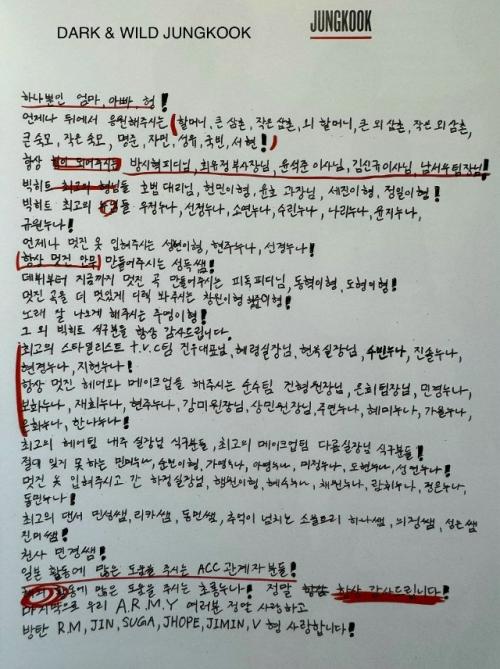 DARK & WILD JUNGKOOK
JUNGKOOK
하나뿐인 엄마, 아빠, 형!
언제나 뒤에서 응원해주시는 (할머니, 큰 삼촌, 작은 삼촌, 외 할머니, 큰 외 삼촌, 작은 외 삼촌,
큰 숙모, 작은 숙모, 명준, 자민, 성유, 국민, 서현!)
항상 힘이 되어주시는 방시혁피디님, 최유정부사장님, 윤석준 이사님, 김신규이사님, 남서우팀장님!
빅히트 최고의 형님들 호범 대리님, 현민이형, 윤호 과장님, 세진이형, 정일이형!
빅히트 최고의 누나들 우정누나, 선정누나, 소연누나, 수린누나, 나리누나, 윤지누나,
규원누나!
언제나 멋진 옷 입혀주시는 성원이형, 현주누나, 선경누나!
항상 멋진 안무 만들어주시는 성득쌤!
데뷔부터 지금까지 멋진 곡 만들어주시는 피독피디님, 동혁이형, 도형이형!
멋진 곡을 더 멋있게 디렉 봐주시는 창원이형
노래 잘 나오게 해주시는 주영이형!
그 외 빅히트 식구분들 항상 감사드립니다.
최고의 스타일리스트 t.v.c팀 건우대표님, 혜령실장님, 현숙실장님, 수빈누나, 진솔누나,
현경누나, 지현누나!
항상 멋진 헤어와 메이크업을 해주시는 순수팀 건형원장님, 은희팀장님, 민경누나,
보화누나, 재희누나, 현주누나, 강미원장님, 상민원장님, 주연누나, 혜미누나, 가율누나,
은화누나, 한나누나!
최고의 헤어팀 내주 실장님 식구분들, 최고의 메이크업팀 다름실장님 식구분들!
절대 잊지 못하는 민머누나, 순보이형, 가영누나, 아영누나, 미정누나, 도현누나, 선연누나!
멋진 옷 입혀주시고 간 하정실장님, 해원이형, 혜수누나, 채원누나, 람희누나, 정은누나,
동연누나!
최고의 댄서 민성쌤, 리카쌤, 동연쌤, 추억이 넘치는 소울트리 하나쌤, 의정쌤, 성은쌤
진미쌤!
천사 민경쌤!
일본 활동에 많은 도움을 주시는 ACC 관계자 분들!
활동에 많은 도움을 주시는 초롱누나! 정말 항상 감사드립니다!
마지막으로 우리 A.R.M.Y 여러분 정말 사랑하고
방탄 R.M, JIN, SUGA, JHOPE, JIMIN, V 형 사랑합니다!